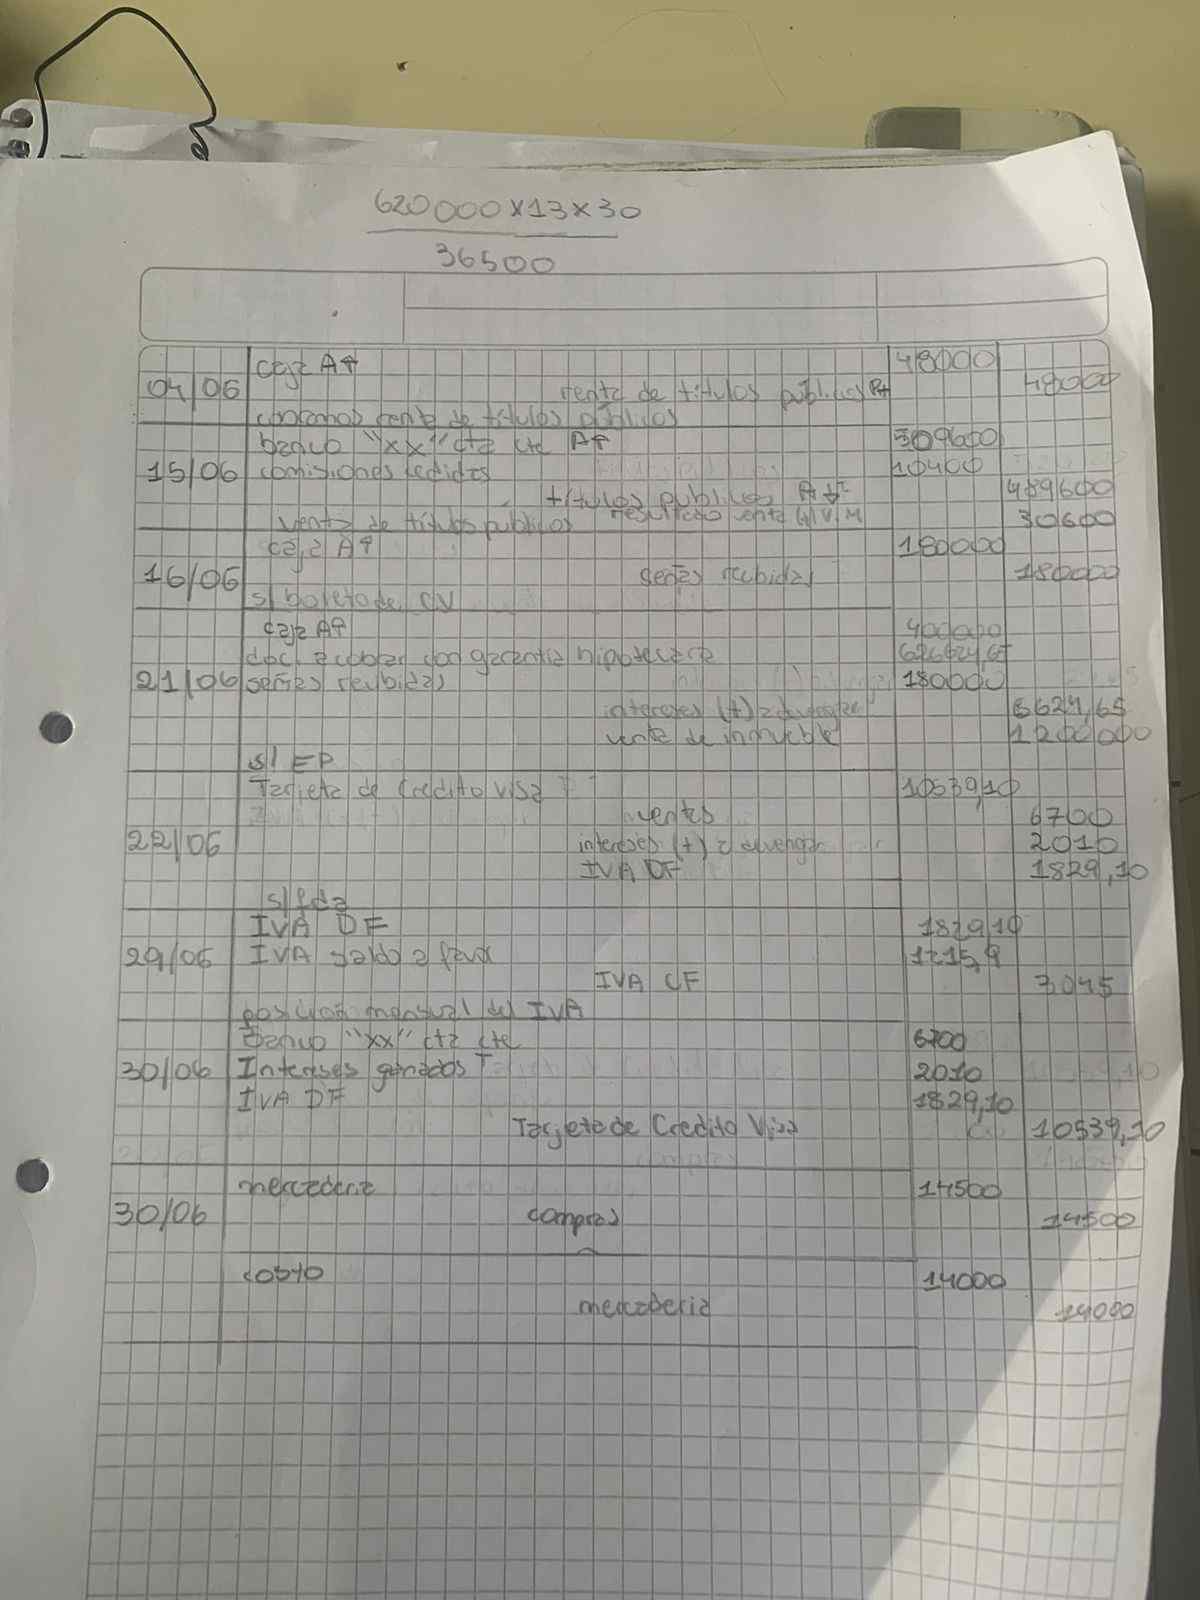 620000x13x30
36500
caja A↑ 48000
04/06 renta de títulos publicos R+ 48000
cobramos renta de títulos públicos
banco "xx" cta cte A↑ 509600
15/06 comisiones cedidas 10400
títulos publicos A↓ 489600
venta de títulos publicos resultado venta 30600
caja A↑ 180000
16/06 señas recibidas 180000
s/ boleto de CV
caja A↑ 400000
doc. a cobrar con garantia hipotecaria 626624,65
21/06 señas recibidas 180000
intereses (+) a devengar 6624,65
venta de inmueble 1200000
s/ EP
Tarjeta de Credito Visa 10539,10
ventas 6700
22/06 intereses (+) a devengar 2010
IVA DF 1829,10
s/fda
IVA DF 1829,10
29/06 IVA saldo a favor 1215,9
IVA CF 3045
posicion mensual del IVA
banco "xx" cta cte 6700
30/06 Intereses ganados 2010
IVA DF 1829,10
Tarjeta de Credito Visa 10539,10
mercaderia 14500
30/06 compras 14500
costo 14000
mercaderia 14000